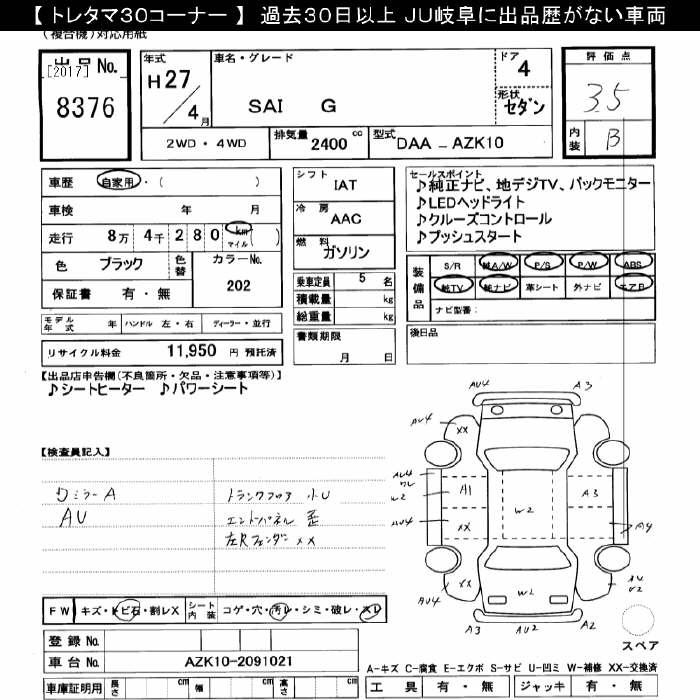 【 トレタマ30コーナー 】 過去30日以上 JU岐阜に出品歴がない車両
(複合機)対応用紙
出品No.
[2017]
8376
年式
H27/4月
車名・グレード
SAI G
ドア
4
形状
セダン
評価点
3.5
内装
B
2WD・4WD
排気量 2400 cc
型式 DAA - AZK10
車歴 自家用・( )
車検 年 月
走行 8万 4千 2 8 0 km マイル ( )
色 ブラック 色替 カラーNo.
202
保証書 有・無
モデル年式 年 ハンドル 左・右 ディーラー・並行
リサイクル料金 11,950 円 預託済
シフト IAT
冷房 AAC
燃料 ガソリン
乗車定員 5 名
積載量 kg
総重量 kg
書類期限
月 日
セールスポイント
♪純正ナビ、地デジTV、バックモニター
♪LEDヘッドライト
♪クルーズコントロール
♪プッシュスタート
装備品
S/R 純A/W P/S P/W ABS
純TV 純ナビ 革シート 外ナビ エアB
ナビ型番:
後日品
【出品店申告欄(不良箇所・欠品・注意事項等)】
♪シートヒーター ♪パワーシート
【検査員記入】
ワミラーA
AU
トランクフロア 小U
エンドパネル 歪
左Rフェンダー XX
AU4
A3
AU4
XX
XX
AU4
W2
A1
W2
A3
AU4
XX
A4
XX
AU4
W2
W2
A3
AU2
A2
スペア
FW キズ・トビ石・割レX シート内装 コゲ・穴・汚レ・シミ・破レ・スレ
登録 No.
車台 No. AZK10-2091021
車庫証明用 長さ cm 幅 cm 高さ cm
A-キズ C-腐食 E-エクボ S-サビ U-凹ミ W-補修 XX-交換済
工具 有・無 ジャッキ 有・無